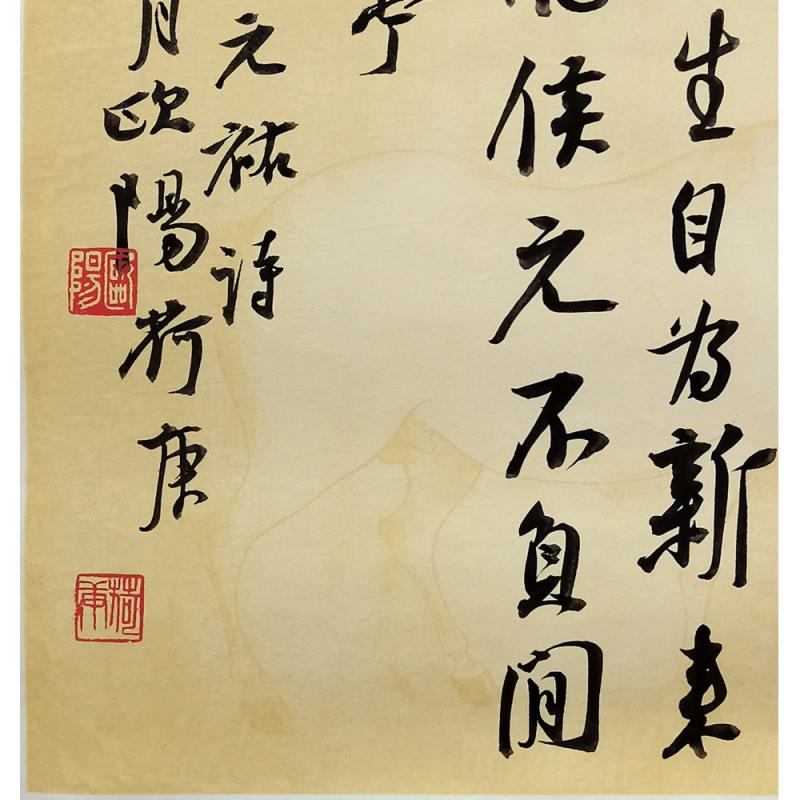 生自为新来
侯元不負閒
亭
元祐詩
月歐陽荷庚
歐陽
荷庚